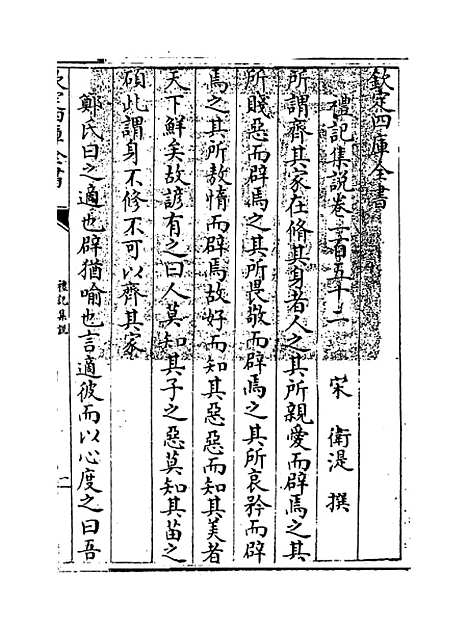 欽定四庫全書
禮記集說卷一百五十二
宋 衛湜 撰
所謂齊其家在脩其身者人之其所親愛而辟焉之其
所賤惡而辟焉之其所畏敬而辟焉之其所哀矜而辟
焉之其所敖惰而辟焉故好而知其惡惡而知其美者
天下鮮矣故諺有之曰人莫知其子之惡莫知其苗之
碩此謂身不修不可以齊其家
鄭氏曰之適也辟猶喻也言適彼而以心度之曰吾
欽定四庫全書
禮記集說